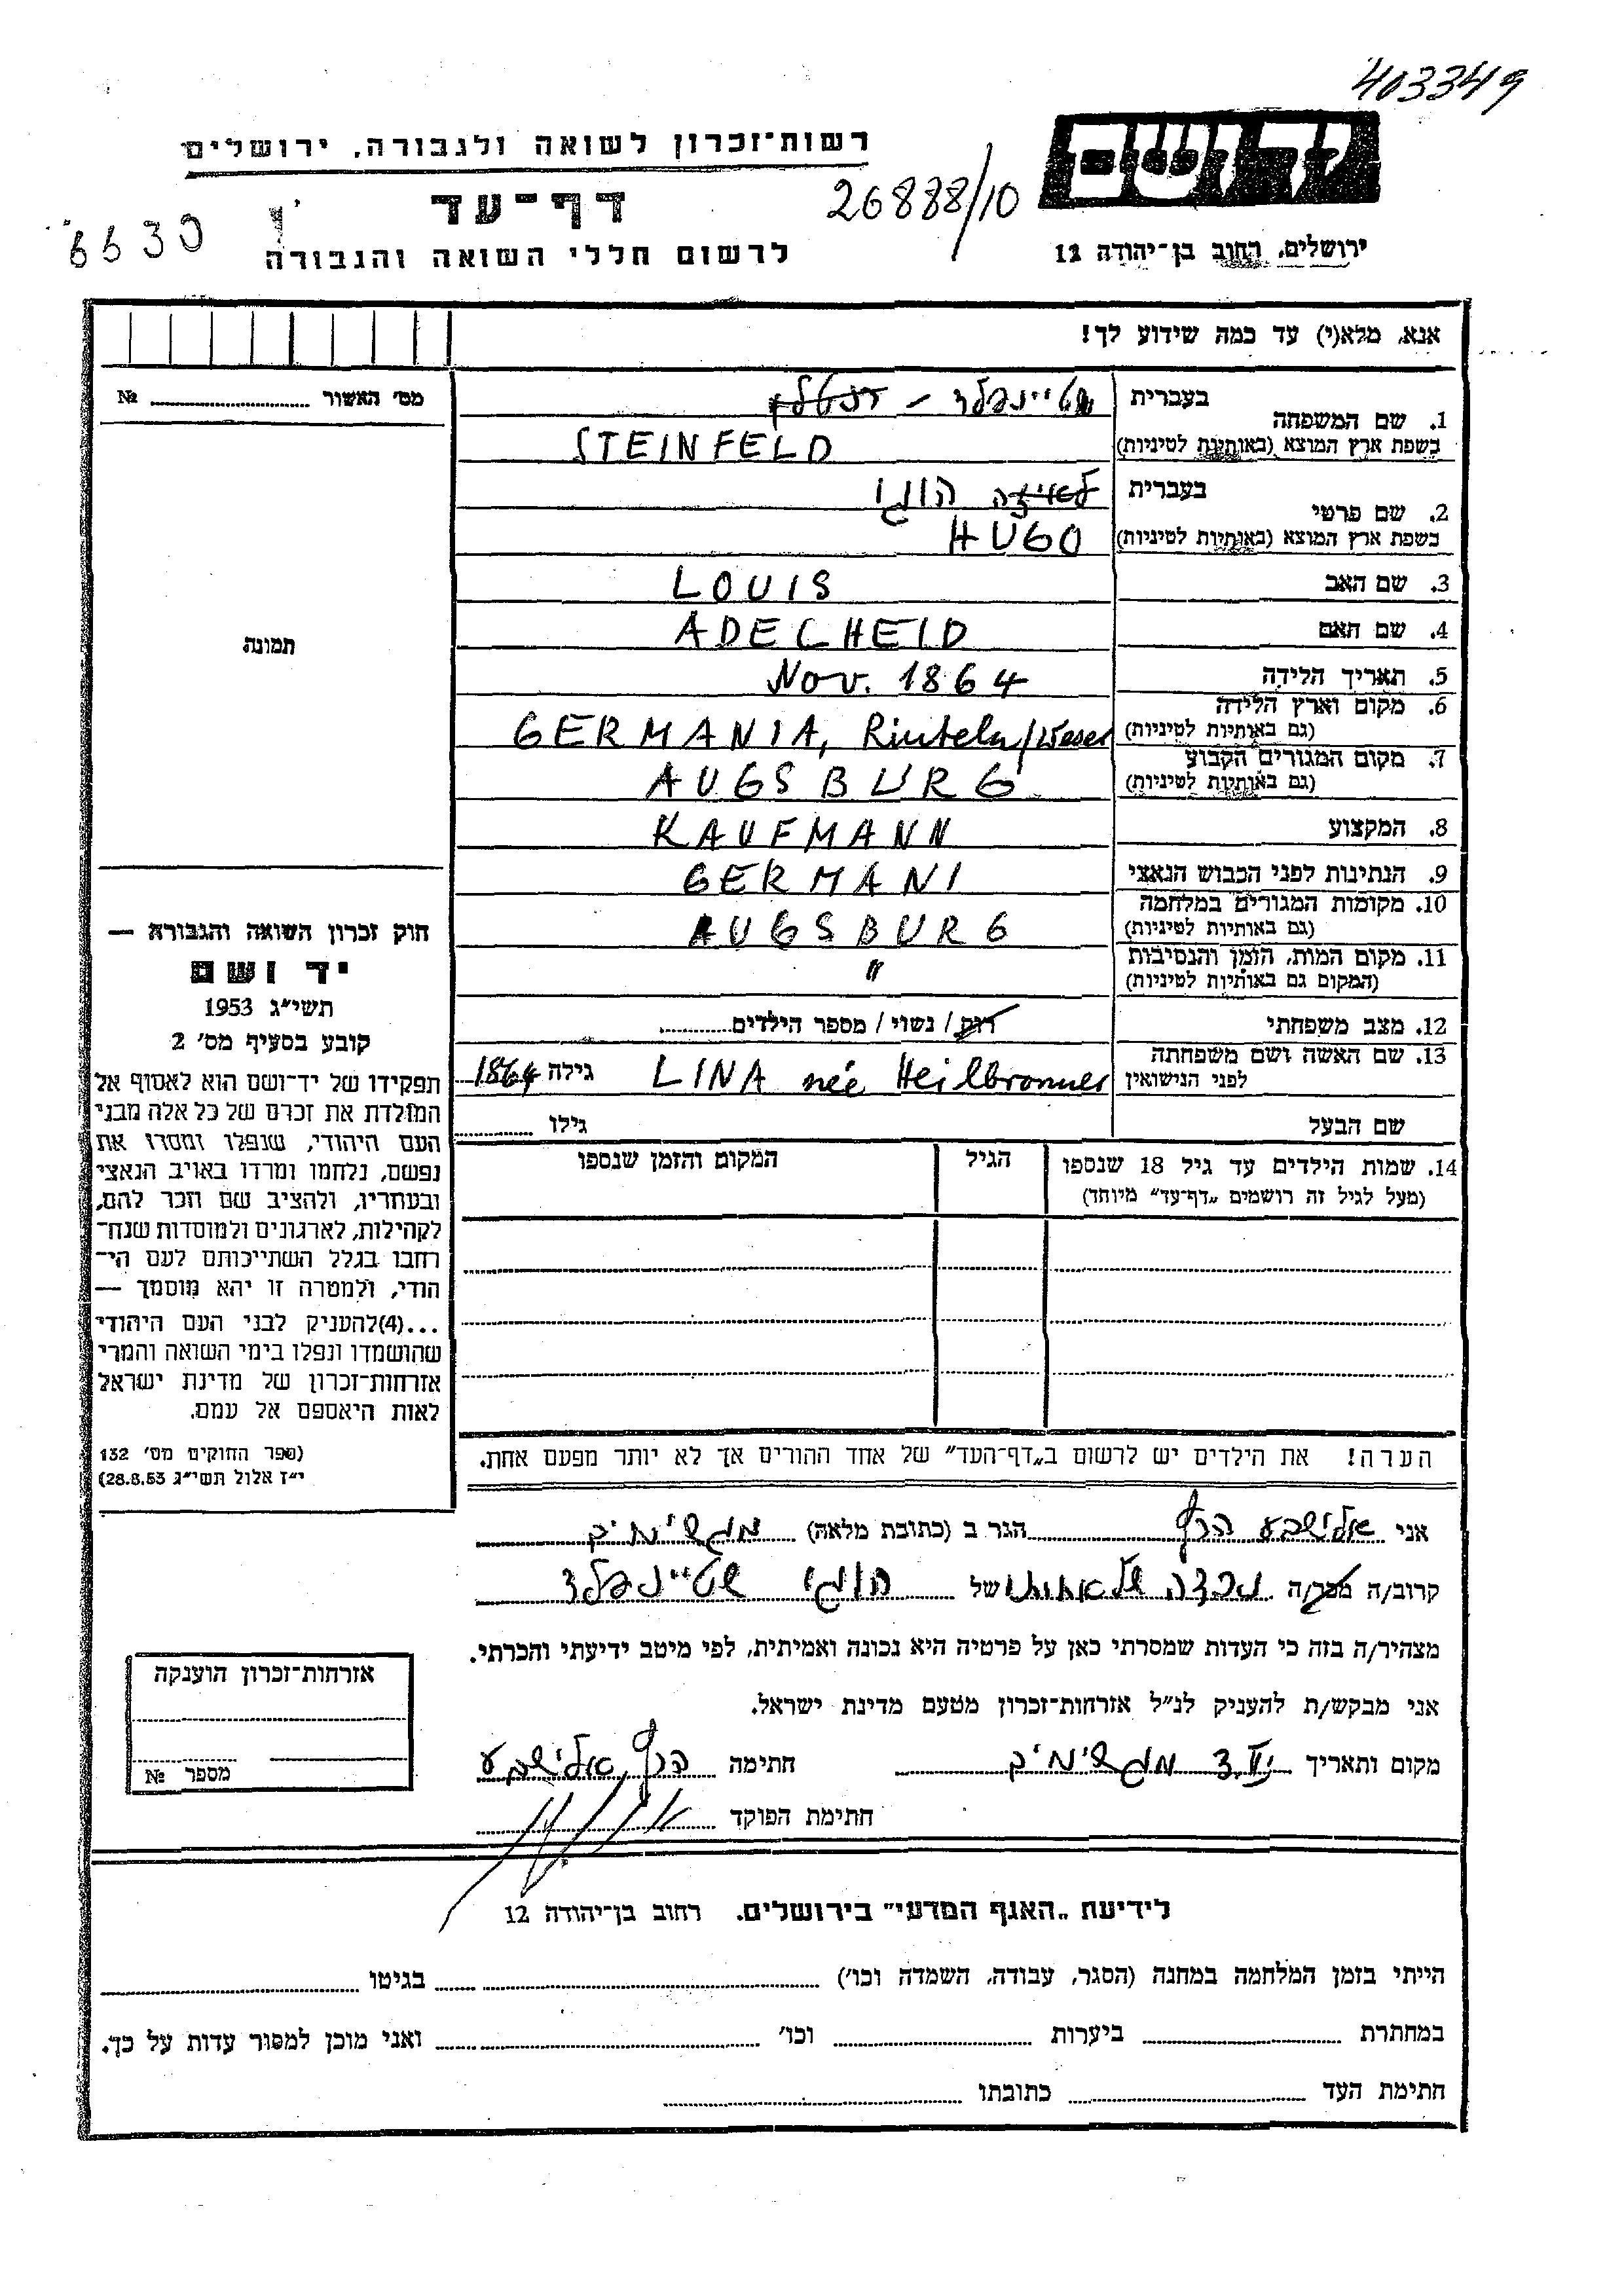 403349
ידושם
רשות־זכרון לשואה ולגבורה, ירושלים
דף־עד
26888/10
6630
לרשום חללי השואה והגבורה
ירושלים, רחוב בן־יהודה 12
אנא, מלא(י) עד כמה שידוע לך!
מס' האשור № 
1. שם המשפחה
בעברית שטיינפלד –
בשפת ארץ המוצא (באותיות לטיניות) STEINFELD
2. שם פרטי
בעברית לאיזה הוגו
בשפת ארץ המוצא (באותיות לטיניות) HUGO
3. שם האב LOUIS
4. שם האם ADELHEID
5. תאריך הלידה Nov. 1864
6. מקום וארץ הלידה
(גם באותיות לטיניות) GERMANIA, Rinteln/Weser
7. מקום המגורים הקבוע
(גם באותיות לטיניות) AUGSBURG
8. המקצוע KAUFMANN
9. הנתינות לפני הכבוש הנאצי GERMANI
10. מקומות המגורים במלחמה
(גם באותיות לטיניות) AUGSBURG
11. מקום המות, הזמן והנסיבות
(המקום גם באותיות לטיניות) "
12. מצב משפחתי רוק / נשוי / מספר הילדים
13. שם האשה ושם משפחתה
לפני הנישואין LINA née Heilbronner גילה 1864
שם הבעל גילו
14. שמות הילדים עד גיל 18 שנספו הגיל המקום והזמן שנספו
(מעל לגיל זה רושמים „דף־עד" מיוחד)
הערה! את הילדים יש לרשום ב„דף־העד" של אחד ההורים אך לא יותר מפעם אחת.
תמונה
חוק זכרון השואה והגבורה —
יד ושם
תשי"ג 1953
קובע בסעיף מס' 2
תפקידו של יד־ושם הוא לאסוף אל
המולדת את זכרם של כל אלה מבני
העם היהודי, שנפלו ומסרו את
נפשם, נלחמו ומרדו באויב הנאצי
ובעוזריו, ולהציב שם וזכר להם,
לקהילות, לארגונים ולמוסדות שנח־
רחבו בגלל השתייכותם לעם הי־
הודי, ולמטרה זו יהא מוסמך —
...(4)להעניק לבני העם היהודי
שהושמדו ונפלו בימי השואה והמרי
אזרחות־זכרון של מדינת ישראל
לאות היאספם אל עמם.
(ספר החוקים מס' 132
י"ז אלול תשי"ג 28.8.53)
אני אלישבע הרף הגר ב (כתובת מלאה) מגשימים
קרוב/ה מכר/ה נכדה של אחותו של הוגו שטיינפלד
מצהיר/ה בזה כי העדות שמסרתי כאן על פרטיה היא נכונה ואמיתית, לפי מיטב ידיעתי והכרתי.
אני מבקש/ת להעניק לנ"ל אזרחות־זכרון מטעם מדינת ישראל.
מקום ותאריך מגשימים חתימה הרף אלישבע
חתימת הפוקד
אזרחות־זכרון הוענקה
מספר №
לידיעת „האגף המדעי" בירושלים. רחוב בן־יהודה 12
הייתי בזמן המלחמה במחנה (הסגר, עבודה, השמדה וכו') בגיטו
במחתרת ביערות וכו' ואני מוכן למסור עדות על כך.
חתימת העד כתובתו